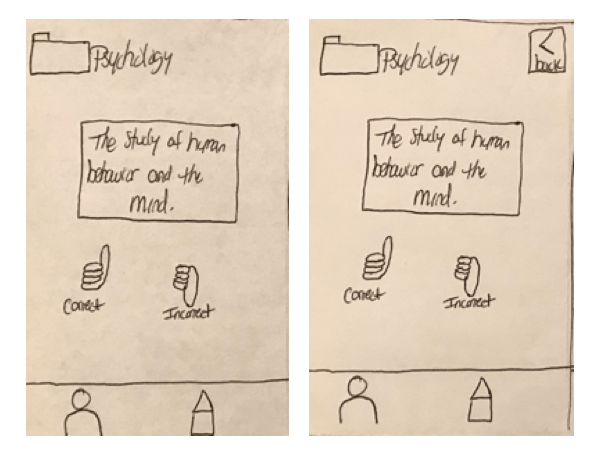 Psychology
The study of human
behavior and the
mind.
Correct
Incorrect
Psychology
back
The study of human
behavior and the
mind.
Correct
Incorrect